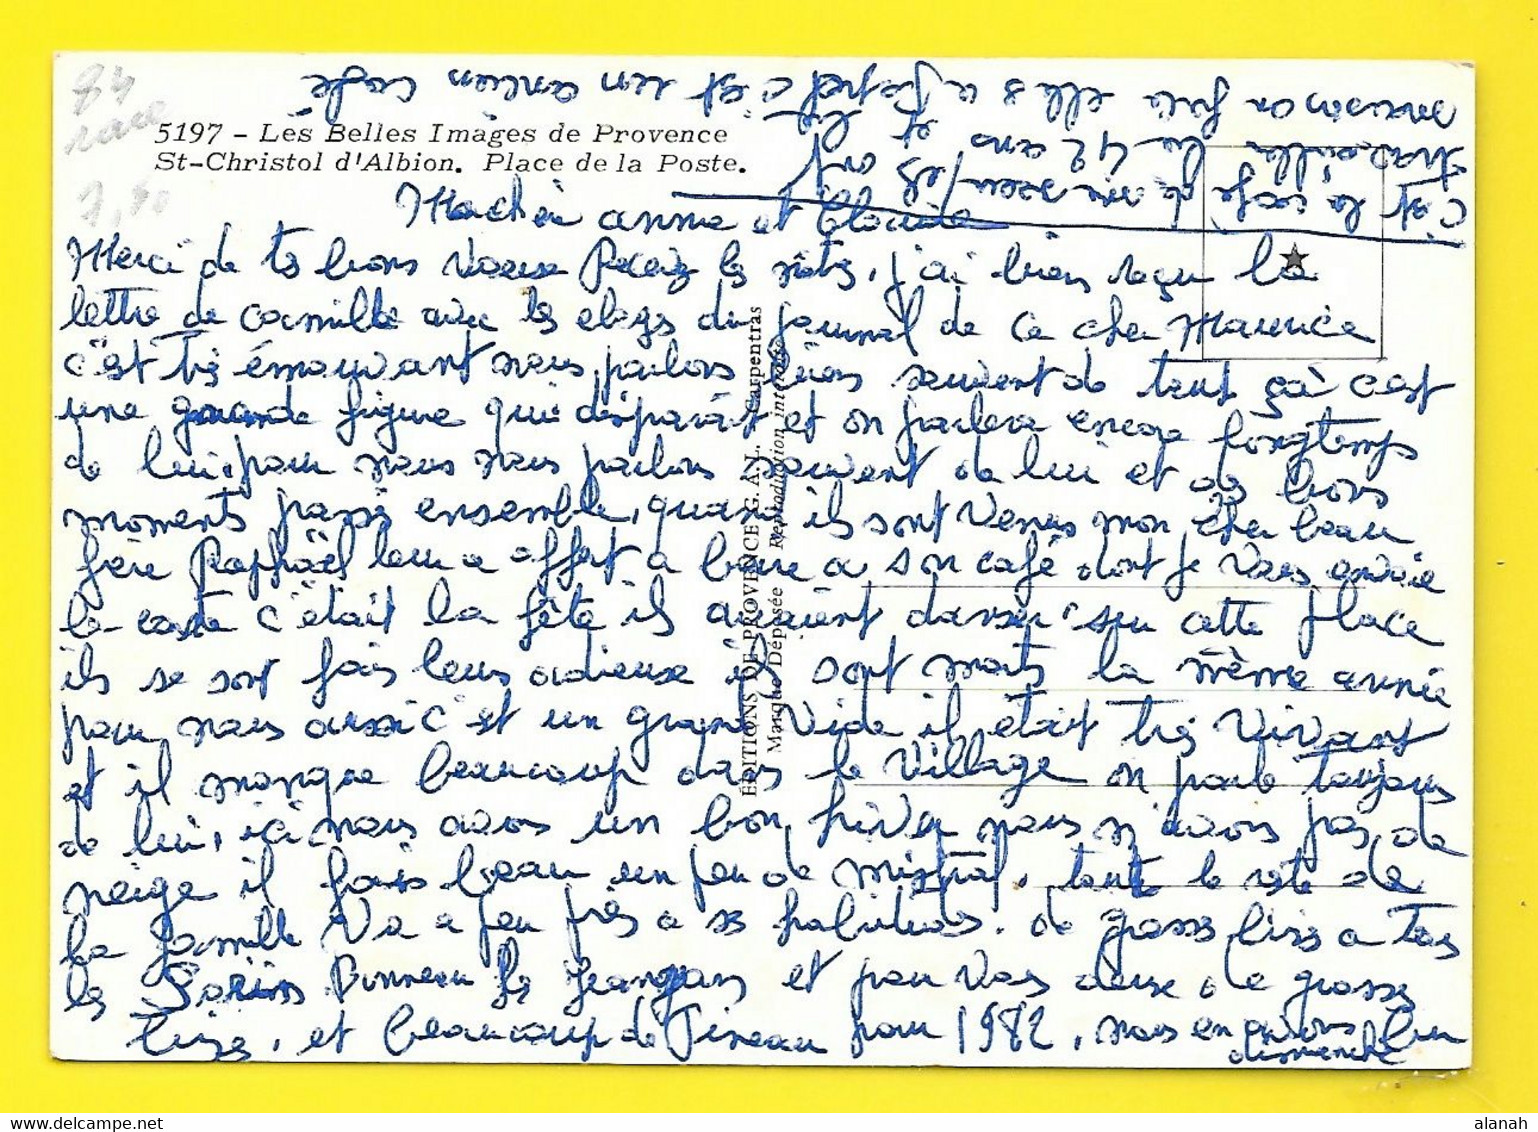 84
rare
7,50
5197 - Les Belles Images de Provence
St-Christol d'Albion. Place de la Poste.
c'est le café de ma sœur, ils ont
travailler la 42 ans et
maison on fais elle a c'est son ancien café
Ma chère anne et
Merci de tes bons vœux j'ai bien reçu la
lettre de camille avec les eloges du journal de ce cher Maurice
c'est très émouvant nous parlons bien souvent de tout ça c'est
une grande figure qui disparait et on parlera encore longtemps
de lui, pour nous nous parlons souvent de lui et des bons
moments passés ensemble, quand ils sont venus mon cher beau
frère Raphaël leur a offert a boire a son café dont je vous envoie
la carte c'était la fête ils avaient danser sur cette place
ils se sont fais leurs adieuse ils sont morts la même année
pour nous aussi c'est un grand vide il était très vivant
et il manque beaucoup dans le village on parle toujours
de lui, ici nous avons un bon hiver nous n'avons pas de
neige il fais beau un peu de mistral, tout le reste de
la famille va a peu près a ses habitudes. de grosses bises a tous
les et pour vous deux de grosses
bises, et beaucoup de pour 1982, nous en avons bu un
dimanche
EDITIONS DE PROVENCE G.A.L. Carpentras
Marque Déposée Reproduction interdite
alanah